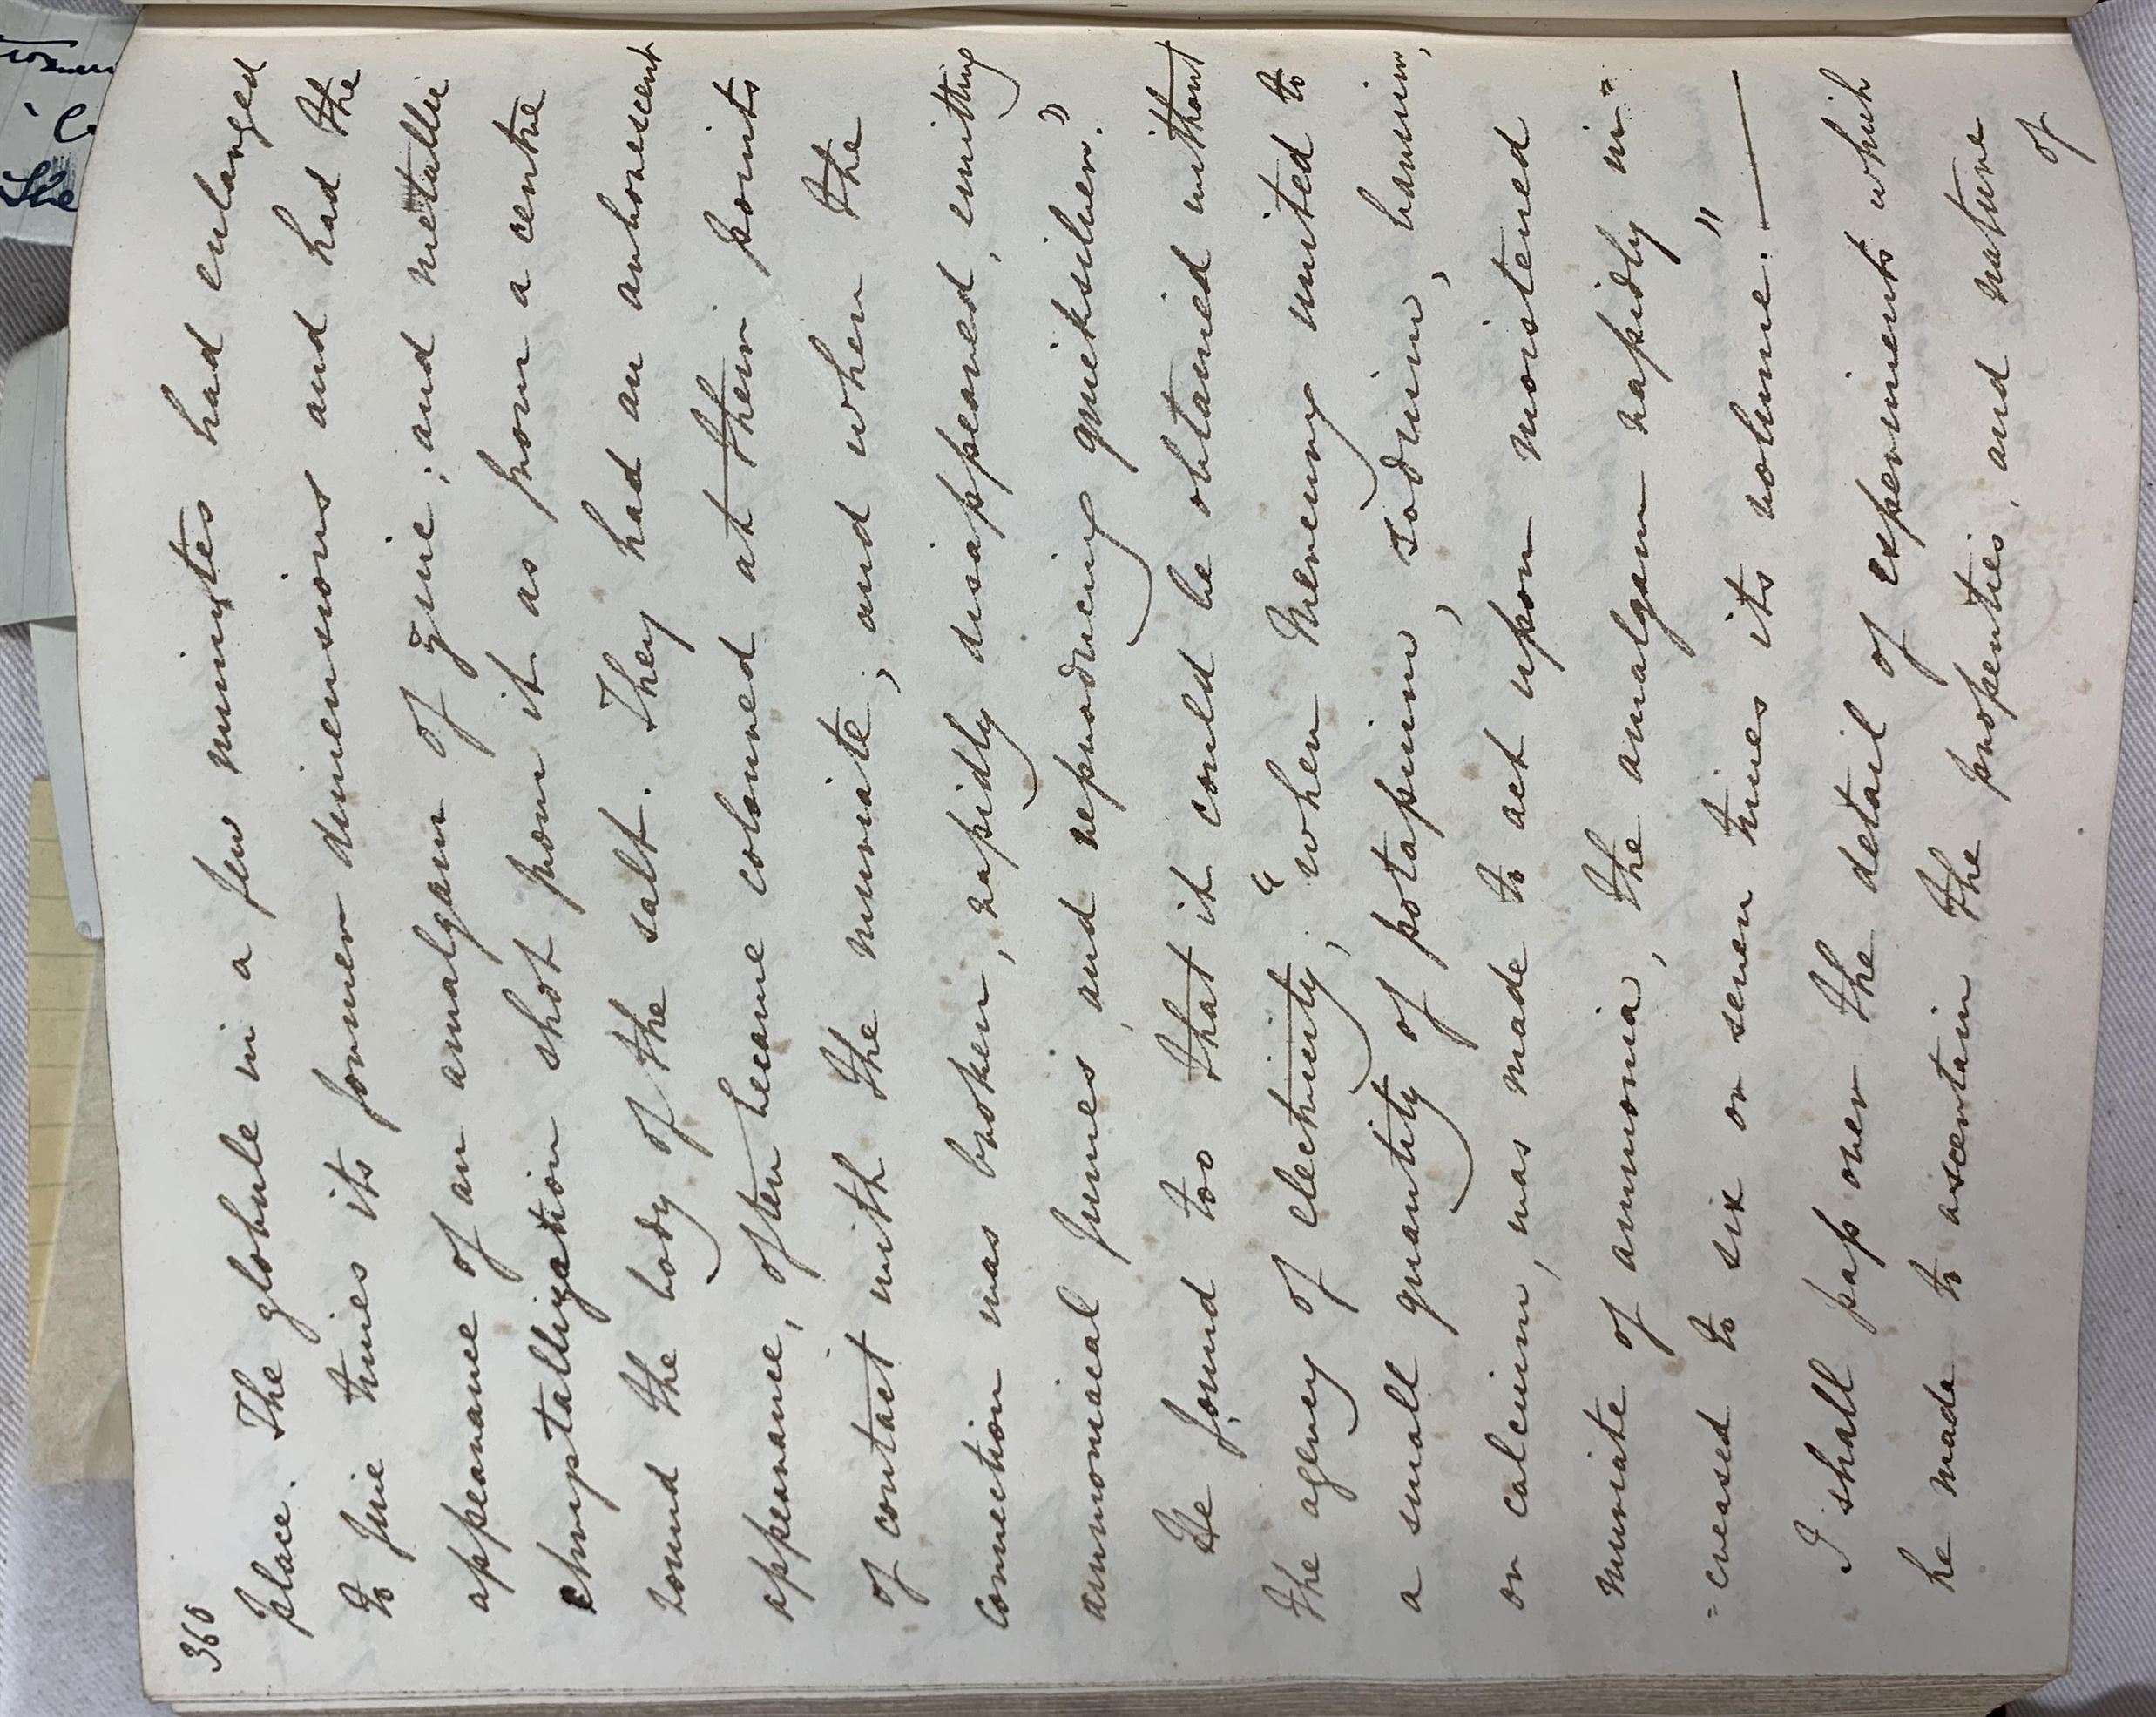 360
place. The globule in a few minutes had enlarged
to five times its former dimensions and had the
appearance of an amalgam of zinc; and metallic
chrystallization shot from it as from a centre
round the body of the salt. They had an arborescent
appearance, often became coloured at their points
of contact with the muriate; and when the
connection was broken, rapidly disappeared, emitting
ammoniacal fumes, and reproducing quicksilver."
He found too that it could be obtained without
the agency of electricity, "when Mercury united to
a small quantity of potassium, sodium, barium,
or calcium, was made to act upon moistened
muriate of ammonia, the amalgam rapidly in=
=creased to six or seven times its volume." —
I shall pass over the detail of experiments which
he made to ascertain the properties, and nature
of
The